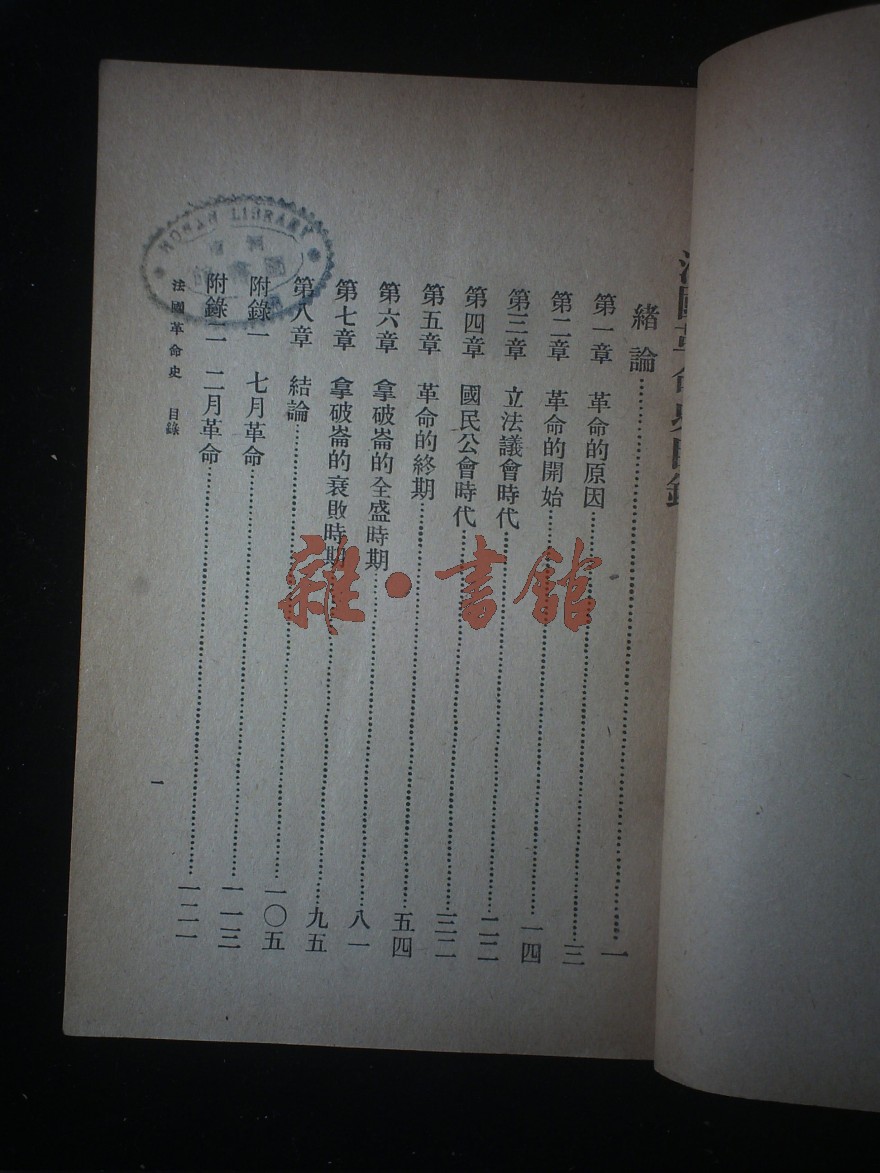 法國革命史目錄
緒論……一
第一章　革命的原因……三
第二章　革命的開始……一四
第三章　立法議會時代……二二
第四章　國民公會時代……三二
第五章　革命的終期……五四
第六章　拿破崙的全盛時期……八一
第七章　拿破崙的衰敗時期……九五
第八章　結論……一〇五
附錄一　七月革命……一一三
附錄二　二月革命……一二一
法國革命史　目錄
一
HONAN LIBRARY
雜·書館